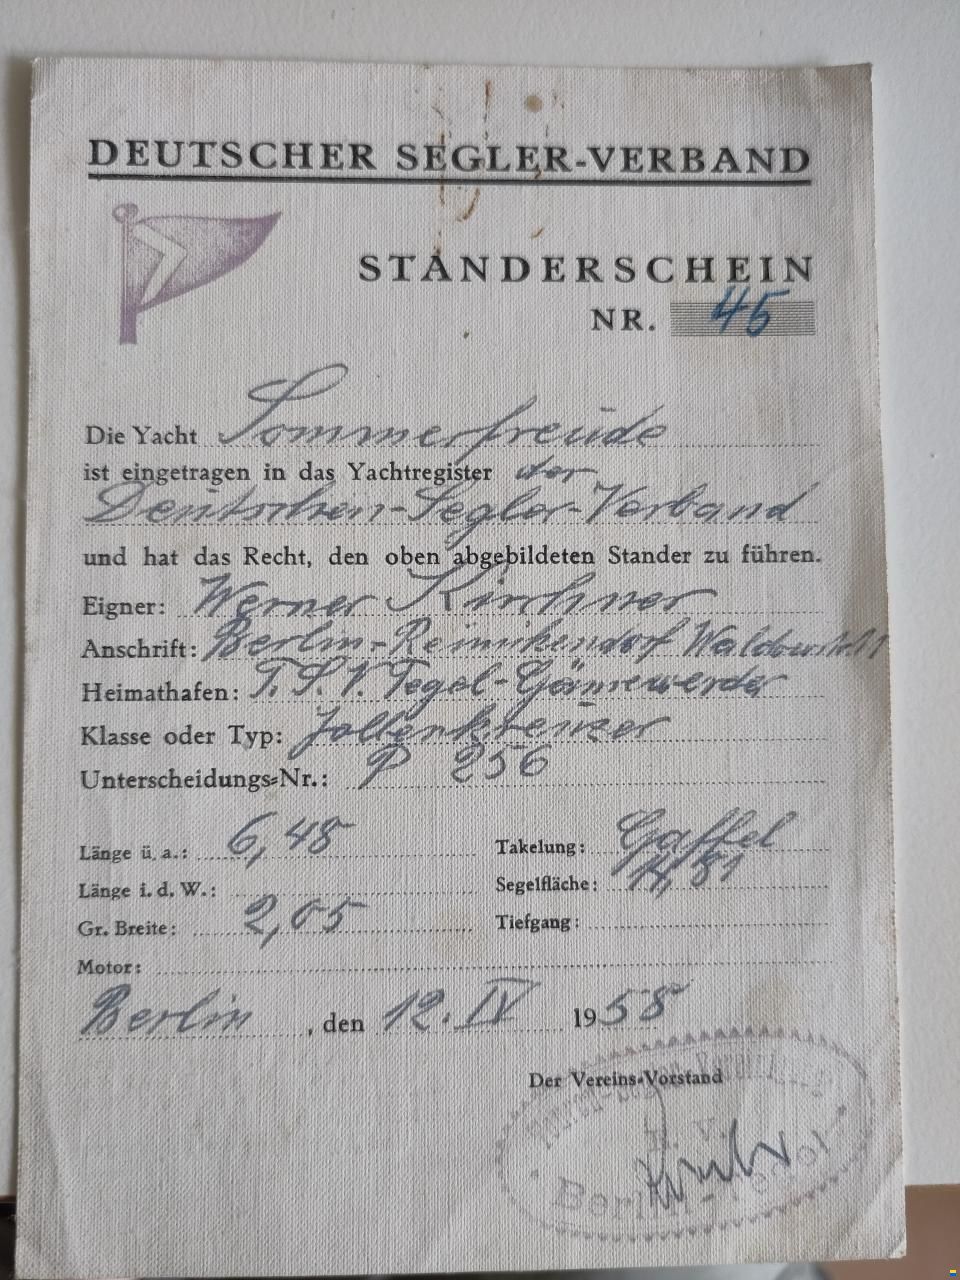 DEUTSCHER SEGLER-VERBAND
STANDERSCHEIN
NR. 45
Die Yacht Sommerfreude
ist eingetragen in das Yachtregister der
Deutschen-Segler-Verband
und hat das Recht, den oben abgebildeten Stander zu führen.
Eigner: Werner Kirchner
Anschrift: Berlin-Reinikendorf
Heimathafen: T.S.V. Tegel-
Klasse oder Typ: Jollenkreuzer
Unterscheidungs-Nr.: P 256
Länge ü. a.: 6,48 Takelung: Gaffel
Länge i. d. W.: Segelfläche:
Gr. Breite: 2,05 Tiefgang:
Motor:
Berlin, den 12. IV 1958
Der Vereins-Vorstand
E. V.
Berlin-Tegel